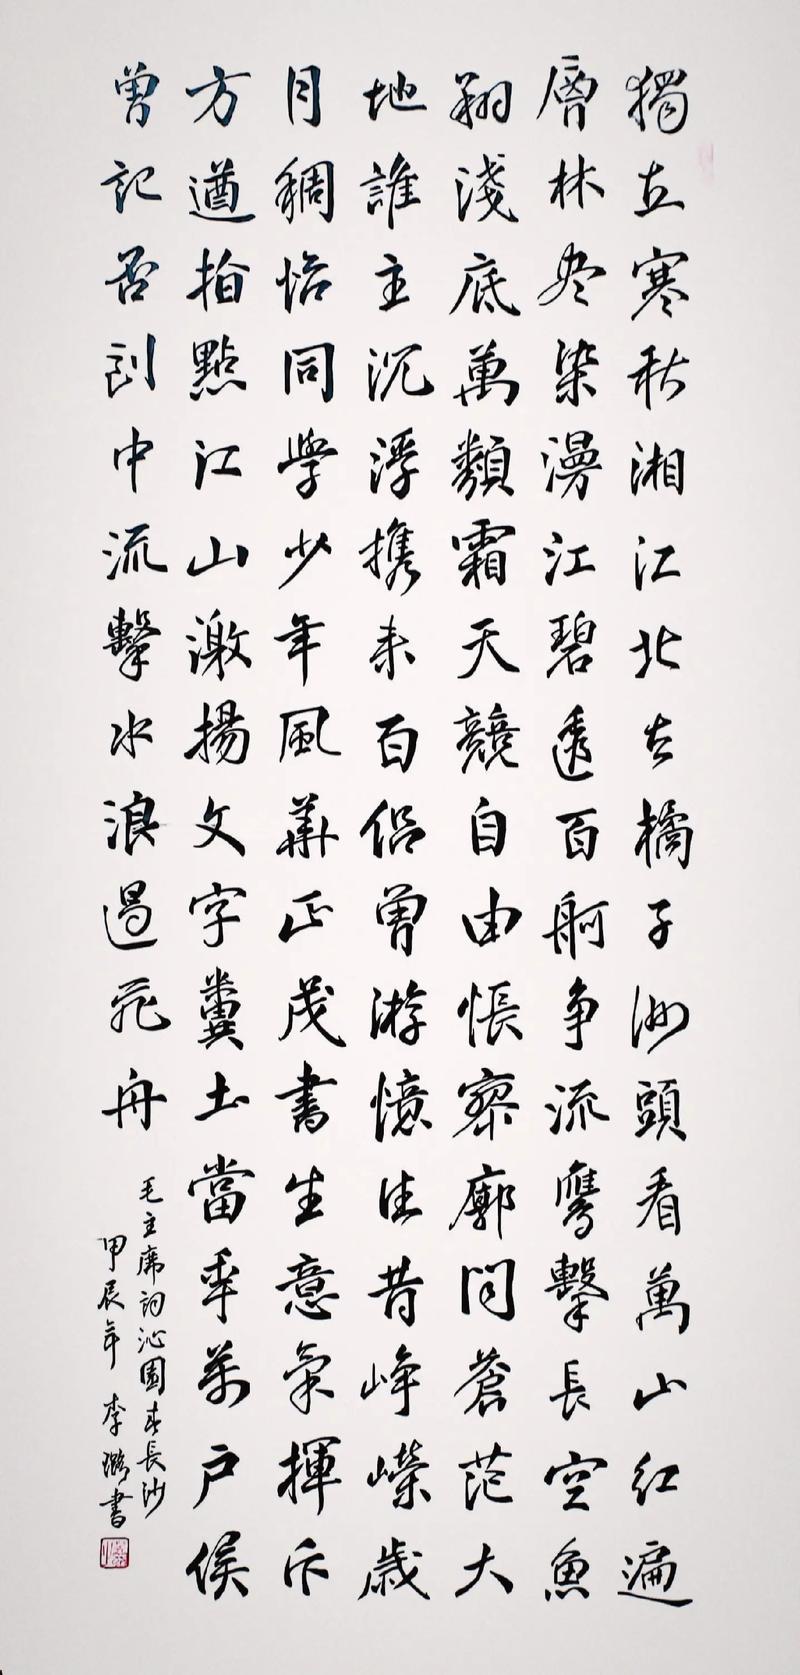 獨立寒秋湘江北去橘子洲頭看萬山紅遍
層林尽染漫江碧透百舸争流鷹擊長空魚
翔淺底萬類霜天競自由悵寥廓問蒼茫大
地誰主沉浮携来百侣曾游憶往昔峥嶸歲
月稠恰同學少年風華正茂書生意氣揮斥
方遒指點江山激揚文字糞土當年萬户侯
曾記否到中流擊水浪遏飛舟
毛主席詞沁園春長沙
甲辰年 李璐書